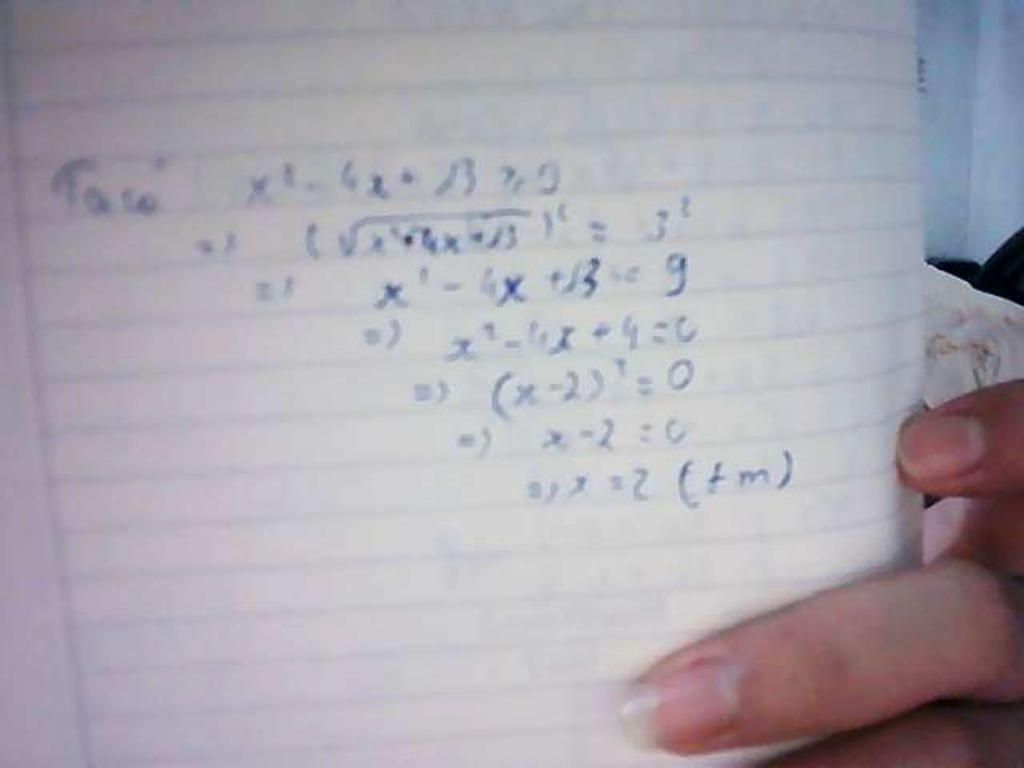 Ta có x² - 4x + 13 ≥ 9
=> (√x²-4x+13)² = 3²
=> x² - 4x + 13 = 9
=> x² - 4x + 4 = 0
=> (x-2)² = 0
=> x-2 = 0
=> x = 2 (tm)